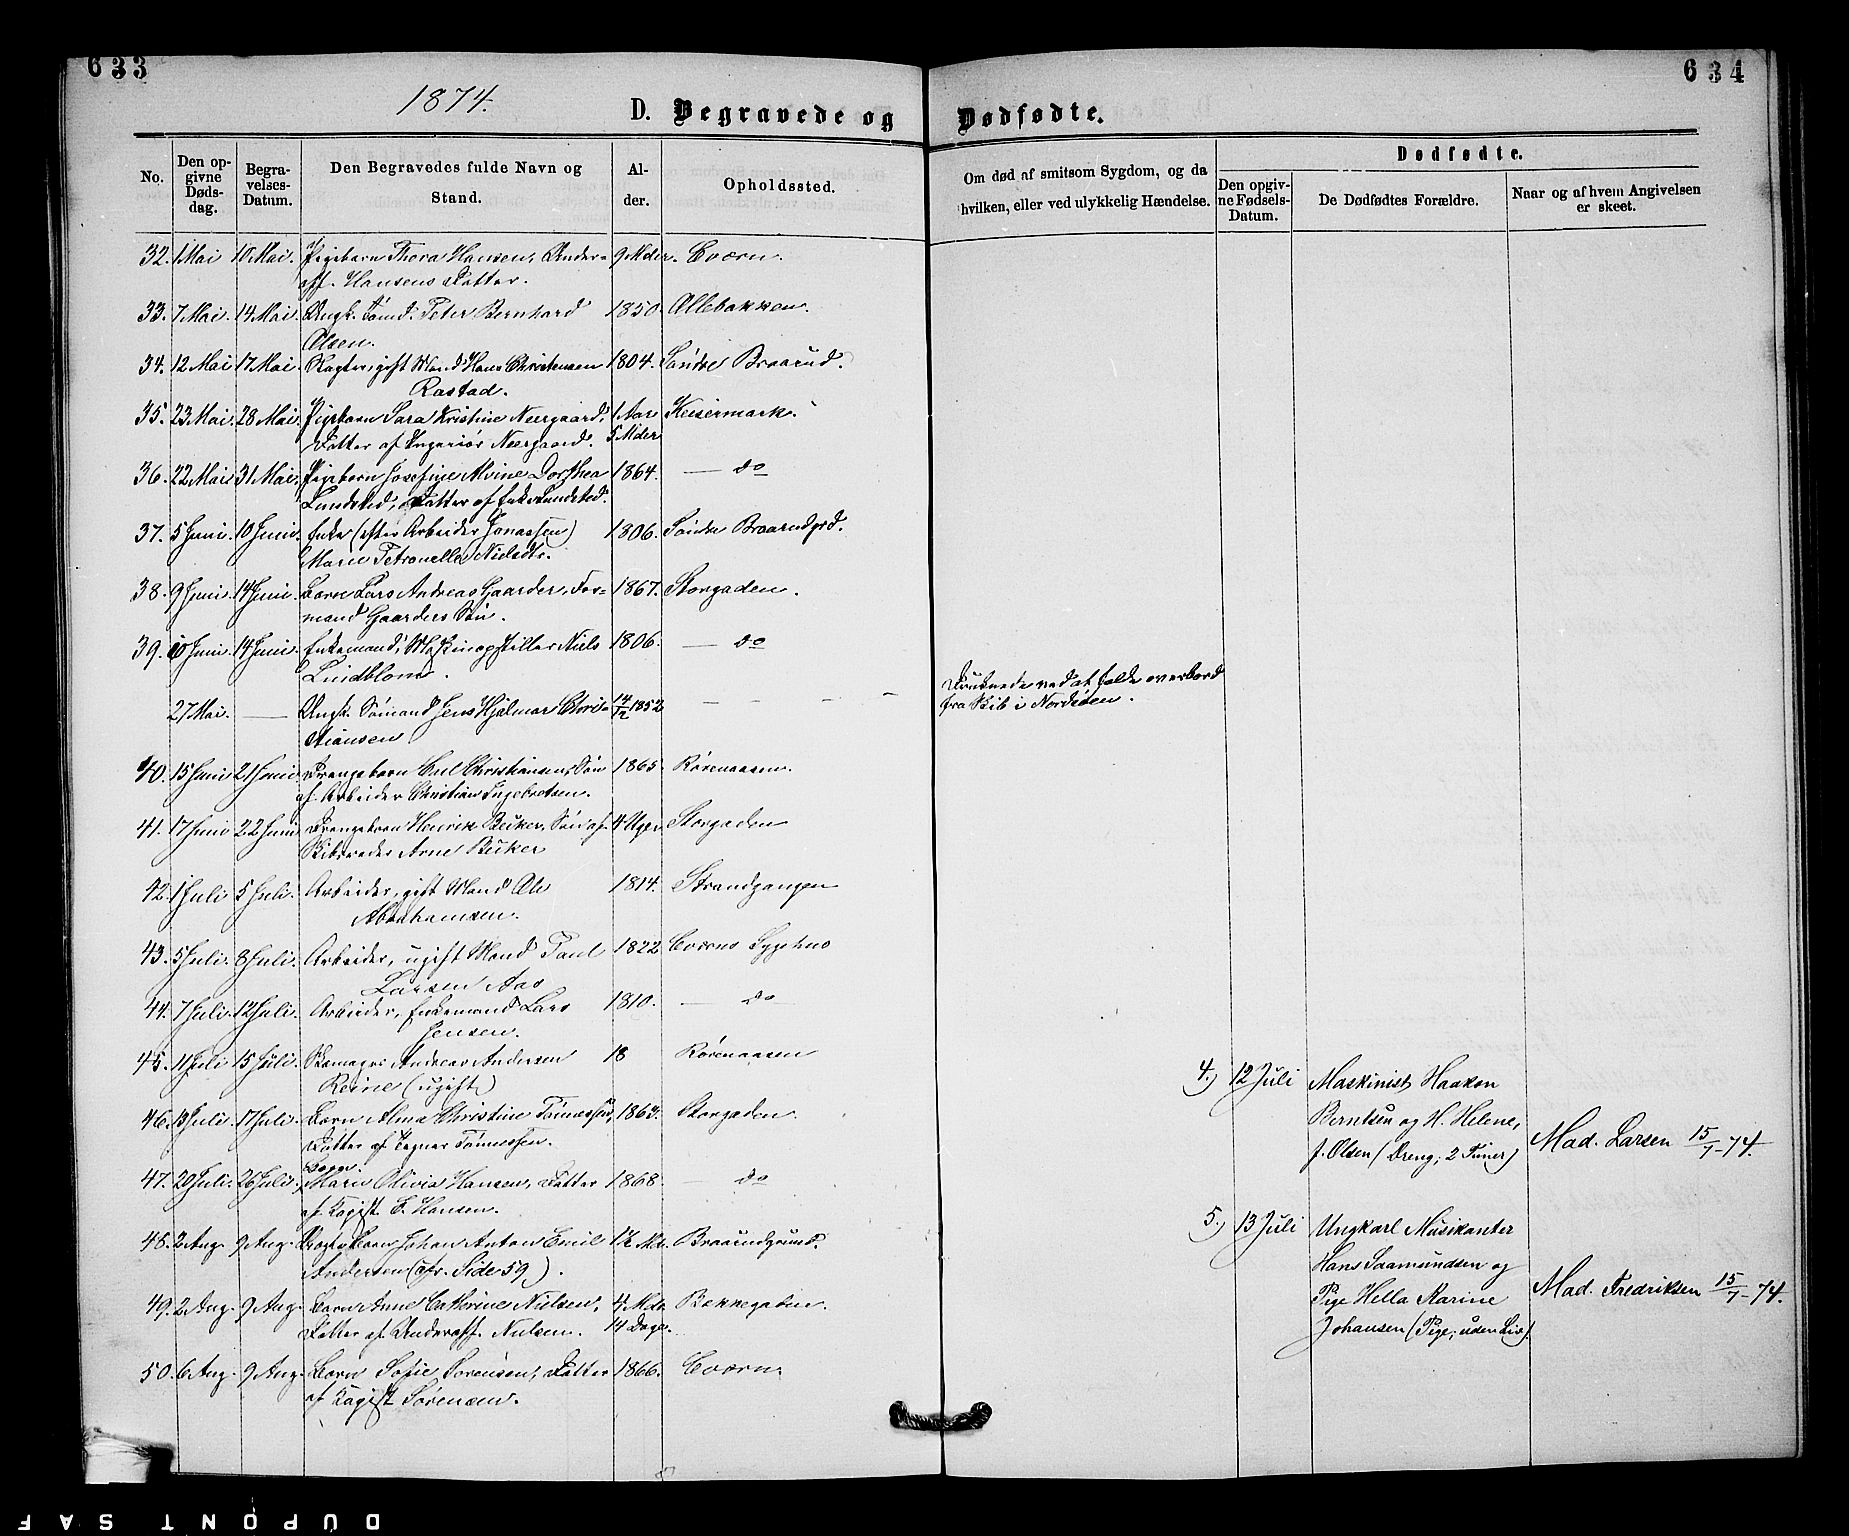 633
634
1874.
D. Begravede og Dødfødte.
No.
Den opgivne Dødsdag.
Begravelses-Datum.
Den Begravedes fulde Navn og Stand.
Alder.
Opholdssted.
Om død af smitsom Sygdom, og da hvilken, eller ved ulykkelig Hændelse.
Dødfødte.
Den opgivne Fødsels-Datum.
De Dødfødtes Forældre.
Naar og af hvem Angivelsen er skeet.
32. 1 Mai 10 Mai. Pigebarn Thora Hansen, Under- 9 Mdr. Hværn.
off. Hansens Datter.
33. 7 Mai. 14 Mai. Ungk. Sømd. Peter Bernhard 1850. Allebakken.
Olsen.
34. 12 Mai 17 Mai. gift Mand Hans Christensen 1804. Søndre Braarud.
Rastad.
35. 23 Mai. 28 Mai. Pigebarn Sara Kristine Neergaard, 1 Aar Keisermark.
Datter af Ingeniør Neergaard. 5 Mdr
36. 22 Mai 31 Mai. Pigebarn Josefine Alvine Dorthea 1864. — do
Lundsted, Datter af Enke Lundsted.
37. 5 Juni 10 Juni. Enke (efter Arbeider Jonassen) 1806. Søndre Braarudgrd.
Marie Petronelle Nielsdtr.
38. 9 Juni 14 Juni. Barn Lars Andreas Gaarder, For- 1867. Storgaden.
mand Gaarders Søn.
39. 10 Juni. 14 Juni. Enkemand, Maskinopstiller Niels 1806. — do
Lindblom.
27 Mai. — Ungk. Sømand Jens Hjalmar Chris- 14/12 1852 — — — Druknede ved at falde overbord
tiansen fra Skib i Nordsøen.
40. 15 Juni 21 Juni Drengebarn Christiansen, Søn 1865. Rørenaasen.
af Arbeider Christian Ingebretsen.
41. 17 Juni 22 Juni Drengebarn Henrik Bucker, Søn af 4 Uger Storgaden
Skibsreder Arne Bucker
42. 1 Juli 5 Juli. Arbeider, gift Mand Ole 1814. Strandgangen
Abrahamsen.
43. 5 Juli. 8 Juli. Arbeider, ugift Mand Paul 1822 Sygehus
Larsen Aas
44. 7 Juli. 12 Juli. Arbeider, Enkemand Lars 1810. — do
Jensen.
45. 11 Juli 15 Juli. Skomager Andreas Andersen 18 Rørenaasen
Reine (ugift)
46. 13 Juli. 17 Juli. Barn Alma Christine Tømessen, 1863. Storgaden.
Datter af Tømessen.
47. 20 Juli. 26 Juli. Barn Marie Olivia Hansen, Datter 1868. — do
af Logist E. Hansen.
48. 2 Aug. 9 Aug. Barn Johan Anton Emil 1½ Md. Braarudgrund.
Andersen (cfr. Side 59).
49. 2 Aug. 9 Aug. Barn Anne Cathrine Nielsen, 4 Mdr. Bakkegaden.
Datter af Underoff. Nielsen. 14 Dage.
50. 6 Aug. 9 Aug. Barn Sofie Sørensen, Datter 1866. Hværn.
af Logist Sørensen.
4.) 12 Juli Maskinist Haakon
Berntsen og H. Helene,
J. Olsen (Dreng; 2 Timer) Mad. Larsen 15/7-74.
5.) 13 Juli Ungkarl Musikanter
Hans Saamundsen og
Pige Hella Karine Mad. Fredriksen 15/7-74.
Johansen (Pige; uden Liv)
DUPONT SAF